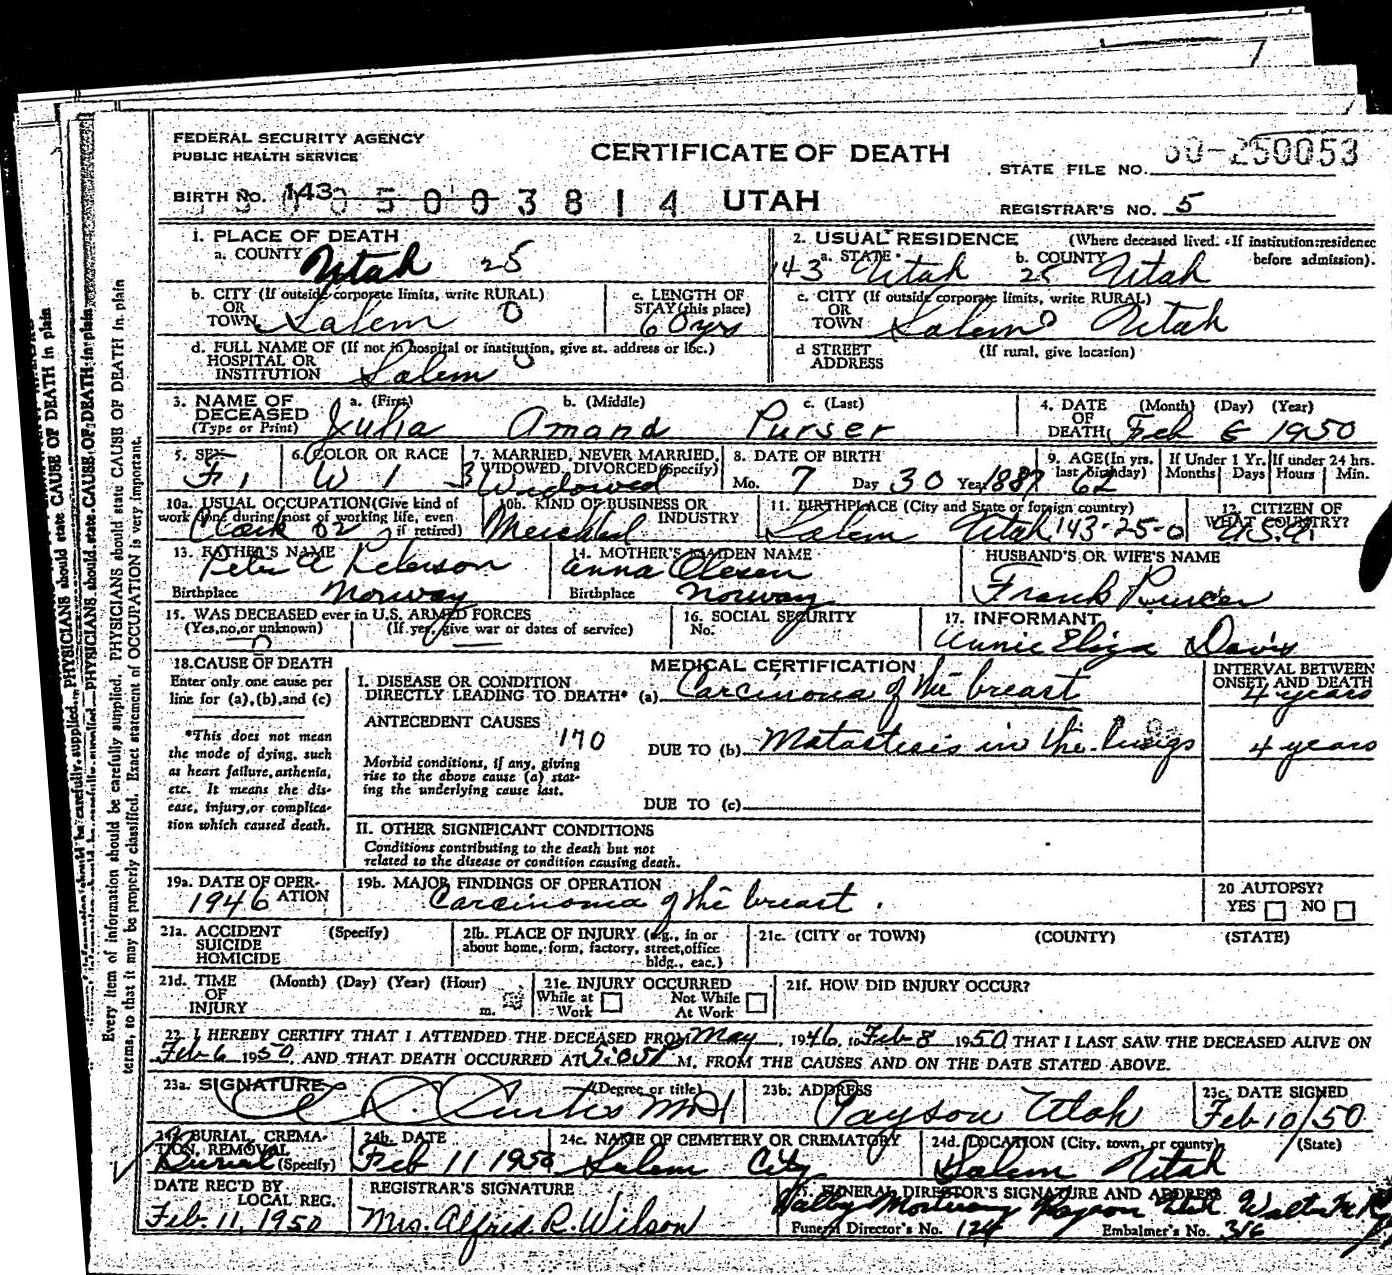 FEDERAL SECURITY AGENCY
PUBLIC HEALTH SERVICE
CERTIFICATE OF DEATH
STATE FILE NO. 50-250053
BIRTH NO. 143 0 5 0 0 0 3 8 1 4 UTAH
REGISTRAR'S NO. 5
1. PLACE OF DEATH
a. COUNTY Utah 25
2. USUAL RESIDENCE (Where deceased lived. If institution: residence before admission).
a. STATE 143 Utah b. COUNTY 25 Utah
b. CITY (If outside corporate limits, write RURAL)
OR
TOWN Salem 0
c. LENGTH OF STAY (this place) 60 yrs
c. CITY (If outside corporate limits, write RURAL)
OR
TOWN Salem 0 Utah
d. FULL NAME OF (If not in hospital or institution, give st. address or loc.)
HOSPITAL OR
INSTITUTION Salem 0
d STREET ADDRESS (If rural, give location)
3. NAME OF DECEASED (Type or Print)
a. (First) b. (Middle) c. (Last)
Julia Amand Purser
4. DATE OF DEATH (Month) (Day) (Year)
Feb 1950
5. SEX F 1
6. COLOR OR RACE W 1
7. MARRIED, NEVER MARRIED, WIDOWED, DIVORCED (Specify)
3 Widowed
8. DATE OF BIRTH
Mo. 7 Day 30 Year 1887
9. AGE (In yrs. last birthday) 62
If Under 1 Yr. Months Days
If under 24 hrs. Hours Min.
10a. USUAL OCCUPATION (Give kind of work done during most of working life, even if retired)
Clark
10b. KIND OF BUSINESS OR INDUSTRY
11. BIRTHPLACE (City and State or foreign country)
Salem Utah 143-25-0
12. CITIZEN OF WHAT COUNTRY?
U.S.A.
13. FATHER'S NAME
Peter A Peterson
Birthplace Norway
14. MOTHER'S MAIDEN NAME
Anna Olesen
Birthplace Norway
HUSBAND'S OR WIFE'S NAME
Frank Purser
15. WAS DECEASED ever in U.S. ARMED FORCES
(Yes, no, or unknown) (If yes, give war or dates of service)
16. SOCIAL SECURITY No.
17. INFORMANT
Annie Eliza Davis
18. CAUSE OF DEATH
Enter only one cause per line for (a), (b), and (c)
*This does not mean the mode of dying, such as heart failure, asthenia, etc. It means the disease, injury, or complication which caused death.
MEDICAL CERTIFICATION
INTERVAL BETWEEN ONSET AND DEATH
I. DISEASE OR CONDITION
DIRECTLY LEADING TO DEATH* (a) Carcinoma of the breast 4 years
ANTECEDENT CAUSES
170
DUE TO (b) Matastesis in the lungs 4 years
Morbid conditions, if any, giving rise to the above cause (a) stating the underlying cause last.
DUE TO (c)
II. OTHER SIGNIFICANT CONDITIONS
Conditions contributing to the death but not related to the disease or condition causing death.
19a. DATE OF OPERATION
1946
19b. MAJOR FINDINGS OF OPERATION
Carcinoma of the breast.
20 AUTOPSY?
YES NO
21a. ACCIDENT SUICIDE HOMICIDE (Specify)
21b. PLACE OF INJURY (e.g., in or about home, form, factory, street, office bldg., eac.)
21c. (CITY or TOWN) (COUNTY) (STATE)
21d. TIME OF INJURY (Month) (Day) (Year) (Hour) m.
21e. INJURY OCCURRED
While at Work Not While At Work
21f. HOW DID INJURY OCCUR?
22. I HEREBY CERTIFY THAT I ATTENDED THE DECEASED FROM May, 1946, to Feb 8 1950 THAT I LAST SAW THE DECEASED ALIVE ON
Feb 6 1950, AND THAT DEATH OCCURRED AT M. FROM THE CAUSES AND ON THE DATE STATED ABOVE.
23a. SIGNATURE (Degree or title)
Curtis MD
23b. ADDRESS
Payson Utah
23c. DATE SIGNED
Feb 10/50
24a. BURIAL, CREMATION, REMOVAL (Specify)
Burial
24b. DATE
Feb 11 1950
24c. NAME OF CEMETERY OR CREMATORY
Salem City
24d. LOCATION (City, town, or county) (State)
Salem Utah
DATE REC'D BY LOCAL REG.
Feb. 11, 1950
REGISTRAR'S SIGNATURE
Mrs. Alfred R. Wilson
25. FUNERAL DIRECTOR'S SIGNATURE AND ADDRESS
Mortuary Payson Utah
Funeral Director's No. 124 Embalmer's No. 316
Every item of information should be carefully supplied. PHYSICIANS should state CAUSE OF DEATH in plain
terms, so that it may be properly classified. Exact statement of OCCUPATION is very important.